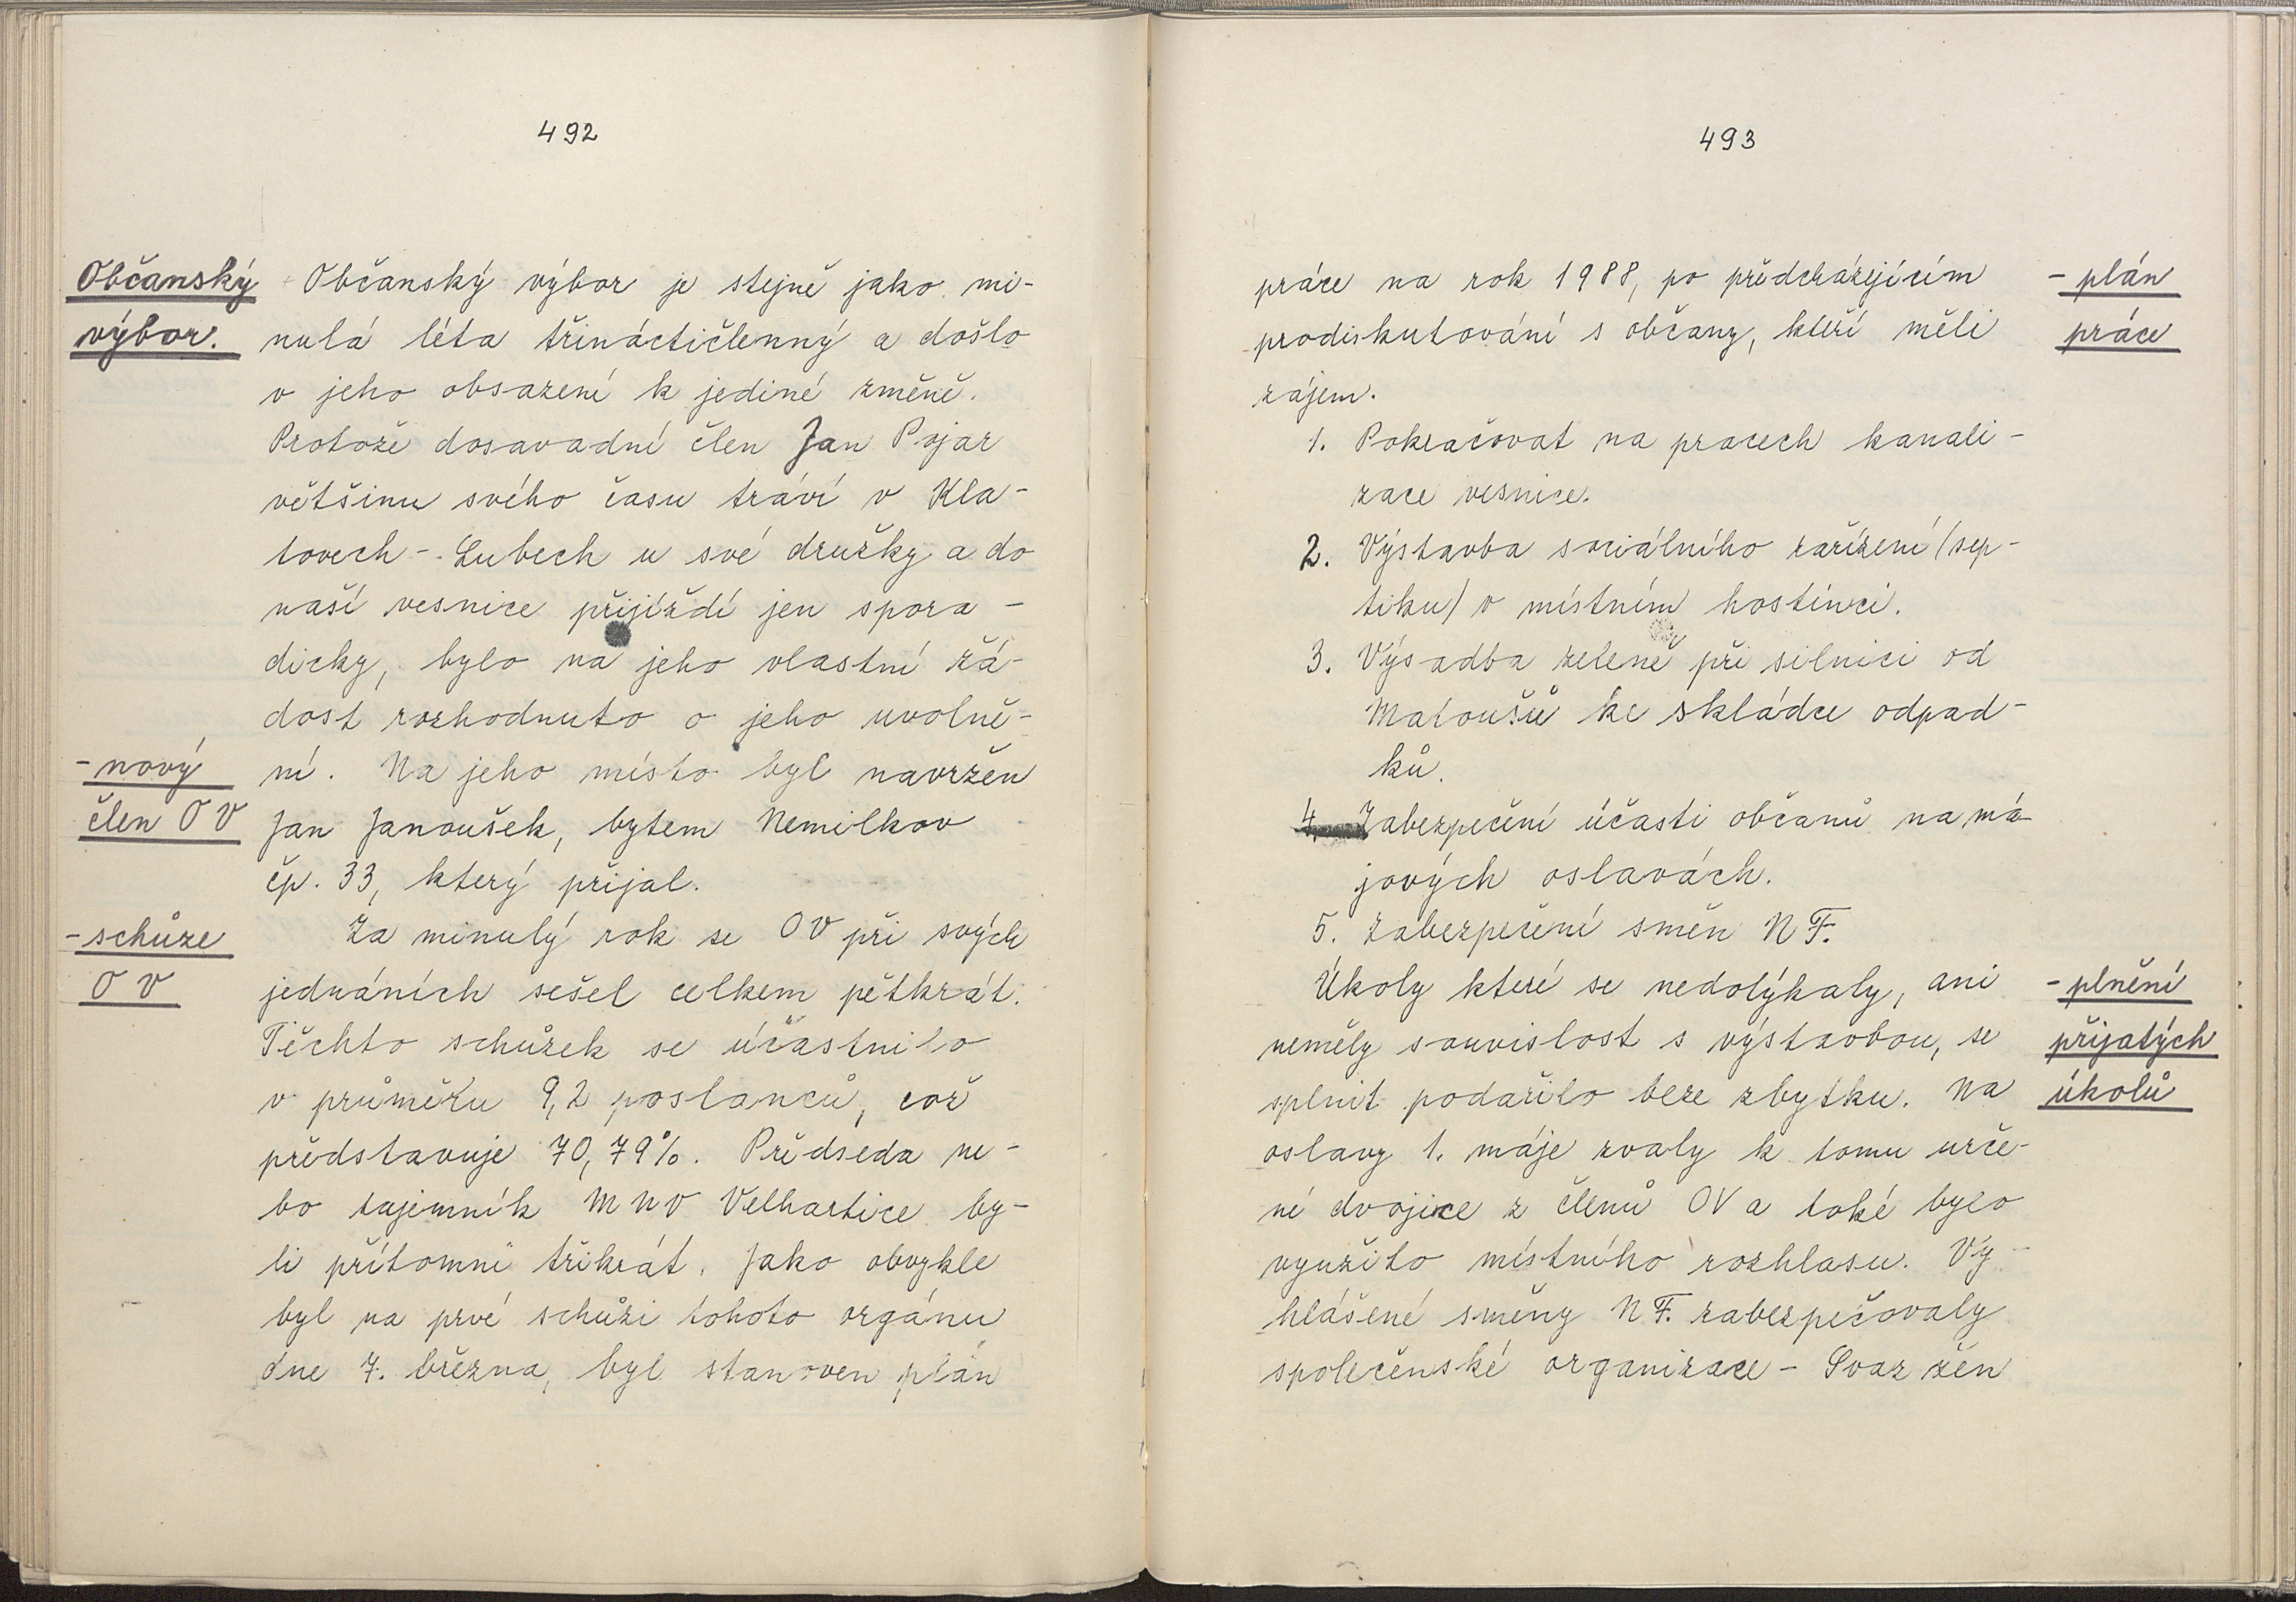 492
Občanský
výbor.
Občanský výbor je stejně jako mi-
nulá léta třináctičlenný a došlo
v jeho obsazení k jediné změně.
Protože dosavadní člen Jan Pojar
většinu svého času tráví v Kla-
tovech - Lubech u své družky a do
naší vesnice přijíždí jen spora-
dicky, bylo na jeho vlastní žá-
dost rozhodnuto o jeho uvolně-
- nový
ní. Na jeho místo byl navržen
člen OV
Jan Janoušek, bytem Nemilkov
čp. 33, který přijal.
- schůze
Za minulý rok se OV při svých
OV
jednáních sešel celkem pětkrát.
Těchto schůzek se účastnilo
v průměru 9,2 poslanců, což
představuje 70,79%. Předseda ne-
bo tajemník MNV Velhartice by-
li přítomni třikrát. Jako obvykle
byl na prvé schůzi tohoto orgánu
dne 7. března, byl stanoven plán
493
práce na rok 1988, po předcházejícím
- plán
prodiskutování s občany, kteří měli
práce
zájem.
1. Pokračovat na pracech kanali-
zace vesnice.
2. Výstavba sociálního zařízení /sep-
tiku/ v místním hostinci.
3. Výsadba zeleně při silnici od
Matoušů ke skládce odpad-
ků.
4. Zabezpečení účasti občanů na má-
jových oslavách.
5. Zabezpečení směn NF.
Úkoly které se nedotýkaly, ani
- plnění
neměly souvislost s výstavbou, se
přijatých
splnit podařilo beze zbytku. Na
úkolů
oslavy 1. máje zvaly k tomu urče-
né dvojice z členů OV a také bylo
využito místního rozhlasu. Vy-
hlášené směny NF. zabezpečovaly
společenské organizace - Svaz žen